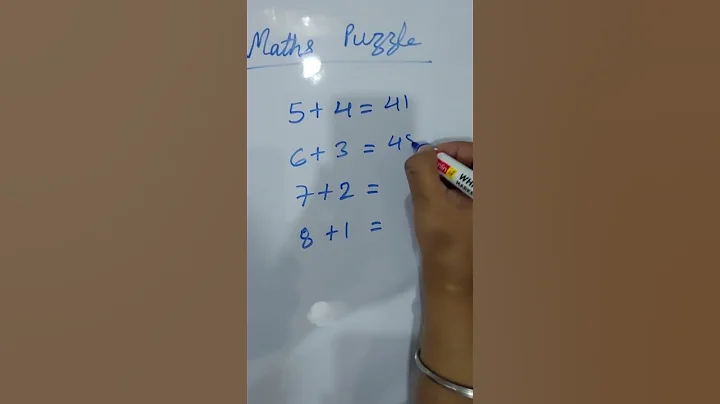 Maths Puzzle
5+4 = 41
6+3 = 45
7+2 =
8+1 =